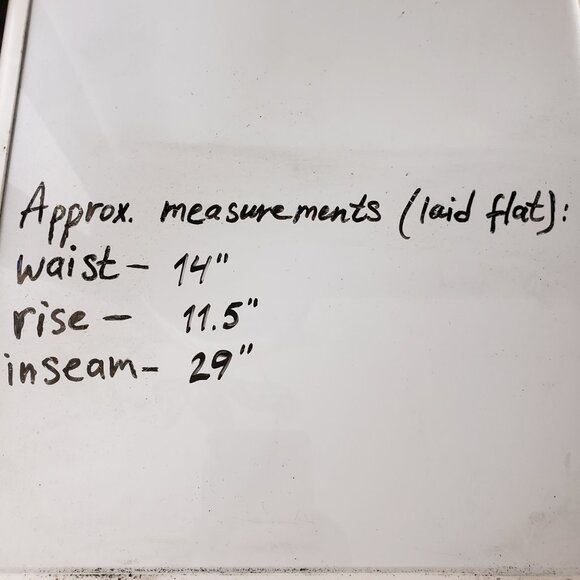 Approx. measurements (laid flat):
waist- 14"
rise - 11.5"
inseam- 29"